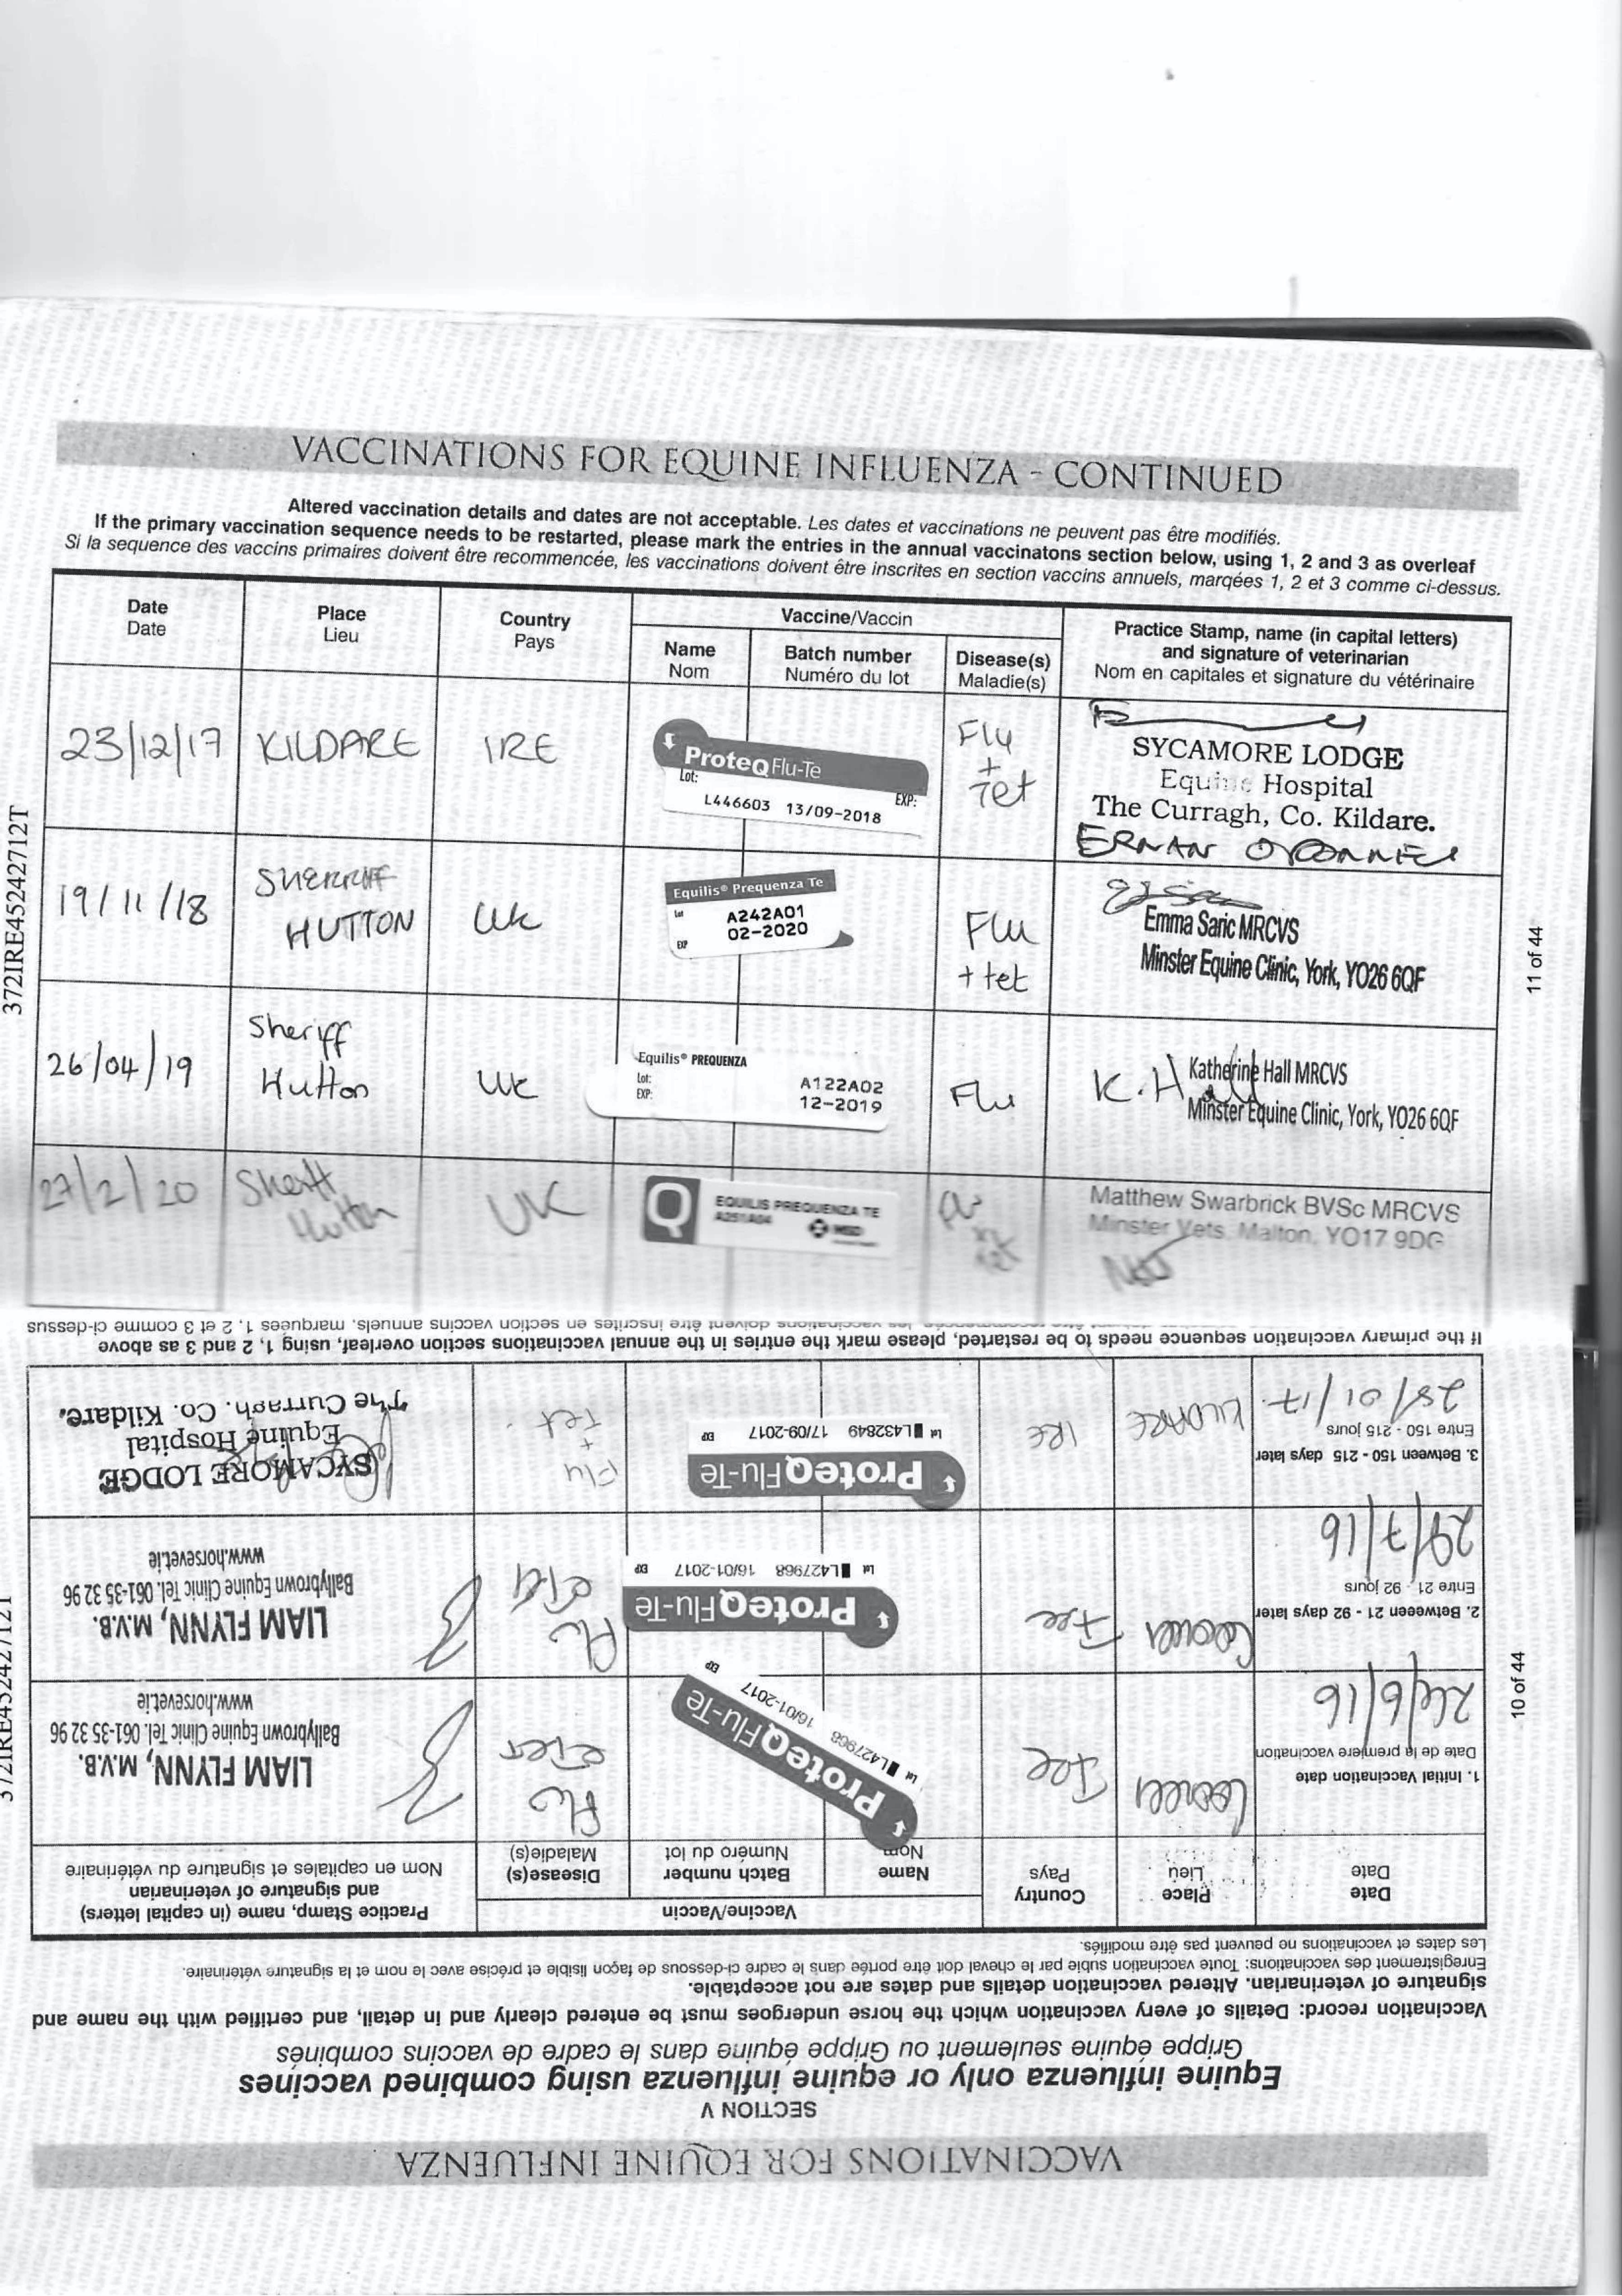 VACCINATIONS FOR EQUINE INFLUENZA - CONTINUED
Altered vaccination details and dates are not acceptable. Les dates et vaccinations ne peuvent pas être modifiés.
If the primary vaccination sequence needs to be restarted, please mark the entries in the annual vaccinatons section below, using 1, 2 and 3 as overleaf
Si la sequence des vaccins primaires doivent être recommencée, les vaccinations doivent être inscrites en section vaccins annuels, marqées 1, 2 et 3 comme ci-dessus.
Date
Date
Place
Lieu
Country
Pays
Vaccine/Vaccin
Name
Nom
Batch number
Numéro du lot
Disease(s)
Maladie(s)
Practice Stamp, name (in capital letters)
and signature of veterinarian
Nom en capitales et signature du vétérinaire
23/12/17
KILDARE
IRE
ProteqFlu-Te
Lot:
EXP:
L446603 13/09-2018
Flu
+
Tet
SYCAMORE LODGE
Equine Hospital
The Curragh, Co. Kildare.
19/11/18
SHERRIFF
HUTTON
UK
Equilis® Prequenza Te
Lot
A242A01
EXP
02-2020
Flu
+ tet
Emma Saric MRCVS
Minster Equine Clinic, York, YO26 6QF
26/04/19
Sheriff
Hutton
UK
Equilis® PREQUENZA
Lot:
A122A02
EXP:
12-2019
Flu
K. Hall
Katherine Hall MRCVS
Minster Equine Clinic, York, YO26 6QF
27/2/20
Hutton
UK
Q
EQUILIS PREQUENZA TE
A251A04
MSD
Matthew Swarbrick BVSc MRCVS
Minster Vets, Malton, YO17 9DG
372IRE45242712T
11 of 44
VACCINATIONS FOR EQUINE INFLUENZA
SECTION V
Equine influenza only or equine influenza using combined vaccines
Grippe équine seulement ou Grippe équine dans le cadre de vaccins combinés
Vaccination record: Details of every vaccination which the horse undergoes must be entered clearly and in detail, and certified with the name and
signature of veterinarian. Altered vaccination details and dates are not acceptable.
Enregistrement des vaccinations: Toute vaccination subie par le cheval doit être portée dans le cadre ci-dessous de façon lisible et précise avec le nom et la signature vétérinaire.
Les dates et vaccinations ne peuvent pas être modifiés.
Date
Date
Place
Lieu
Country
Pays
Vaccine/Vaccin
Name
Nom
Batch number
Numéro du lot
Disease(s)
Maladie(s)
Practice Stamp, name (in capital letters)
and signature of veterinarian
Nom en capitales et signature du vétérinaire
1. Initial Vaccination date
Date de la première vaccination
Ire
ProteqFlu-Te
Lot L427968 16/01-2017 EXP
Flu
LIAM FLYNN, M.V.B.
Ballybrown Equine Clinic Tel. 061-35 32 96
www.horsevet.ie
2. Betweeen 21 - 92 days later
Entre 21 - 92 jours
29/7/16
Ire
ProteqFlu-Te
Lot L427968 16/01-2017 EXP
Flu
LIAM FLYNN, M.V.B.
Ballybrown Equine Clinic Tel. 061-35 32 96
www.horsevet.ie
3. Between 150 - 215 days later
Entre 150 - 215 jours
KILDARE
IRE
ProteqFlu-Te
Lot L432849 17/09-2017 EXP
Flu
+
Tet
SYCAMORE LODGE
Equine Hospital
The Curragh. Co. Kildare.
If the primary vaccination sequence needs to be restarted, please mark the entries in the annual vaccinations section overleaf, using 1, 2 and 3 as above
les vaccinations doivent être inscrites en section vaccins annuels, marquées 1, 2 et 3 comme ci-dessus
372IRE45242712T
10 of 44